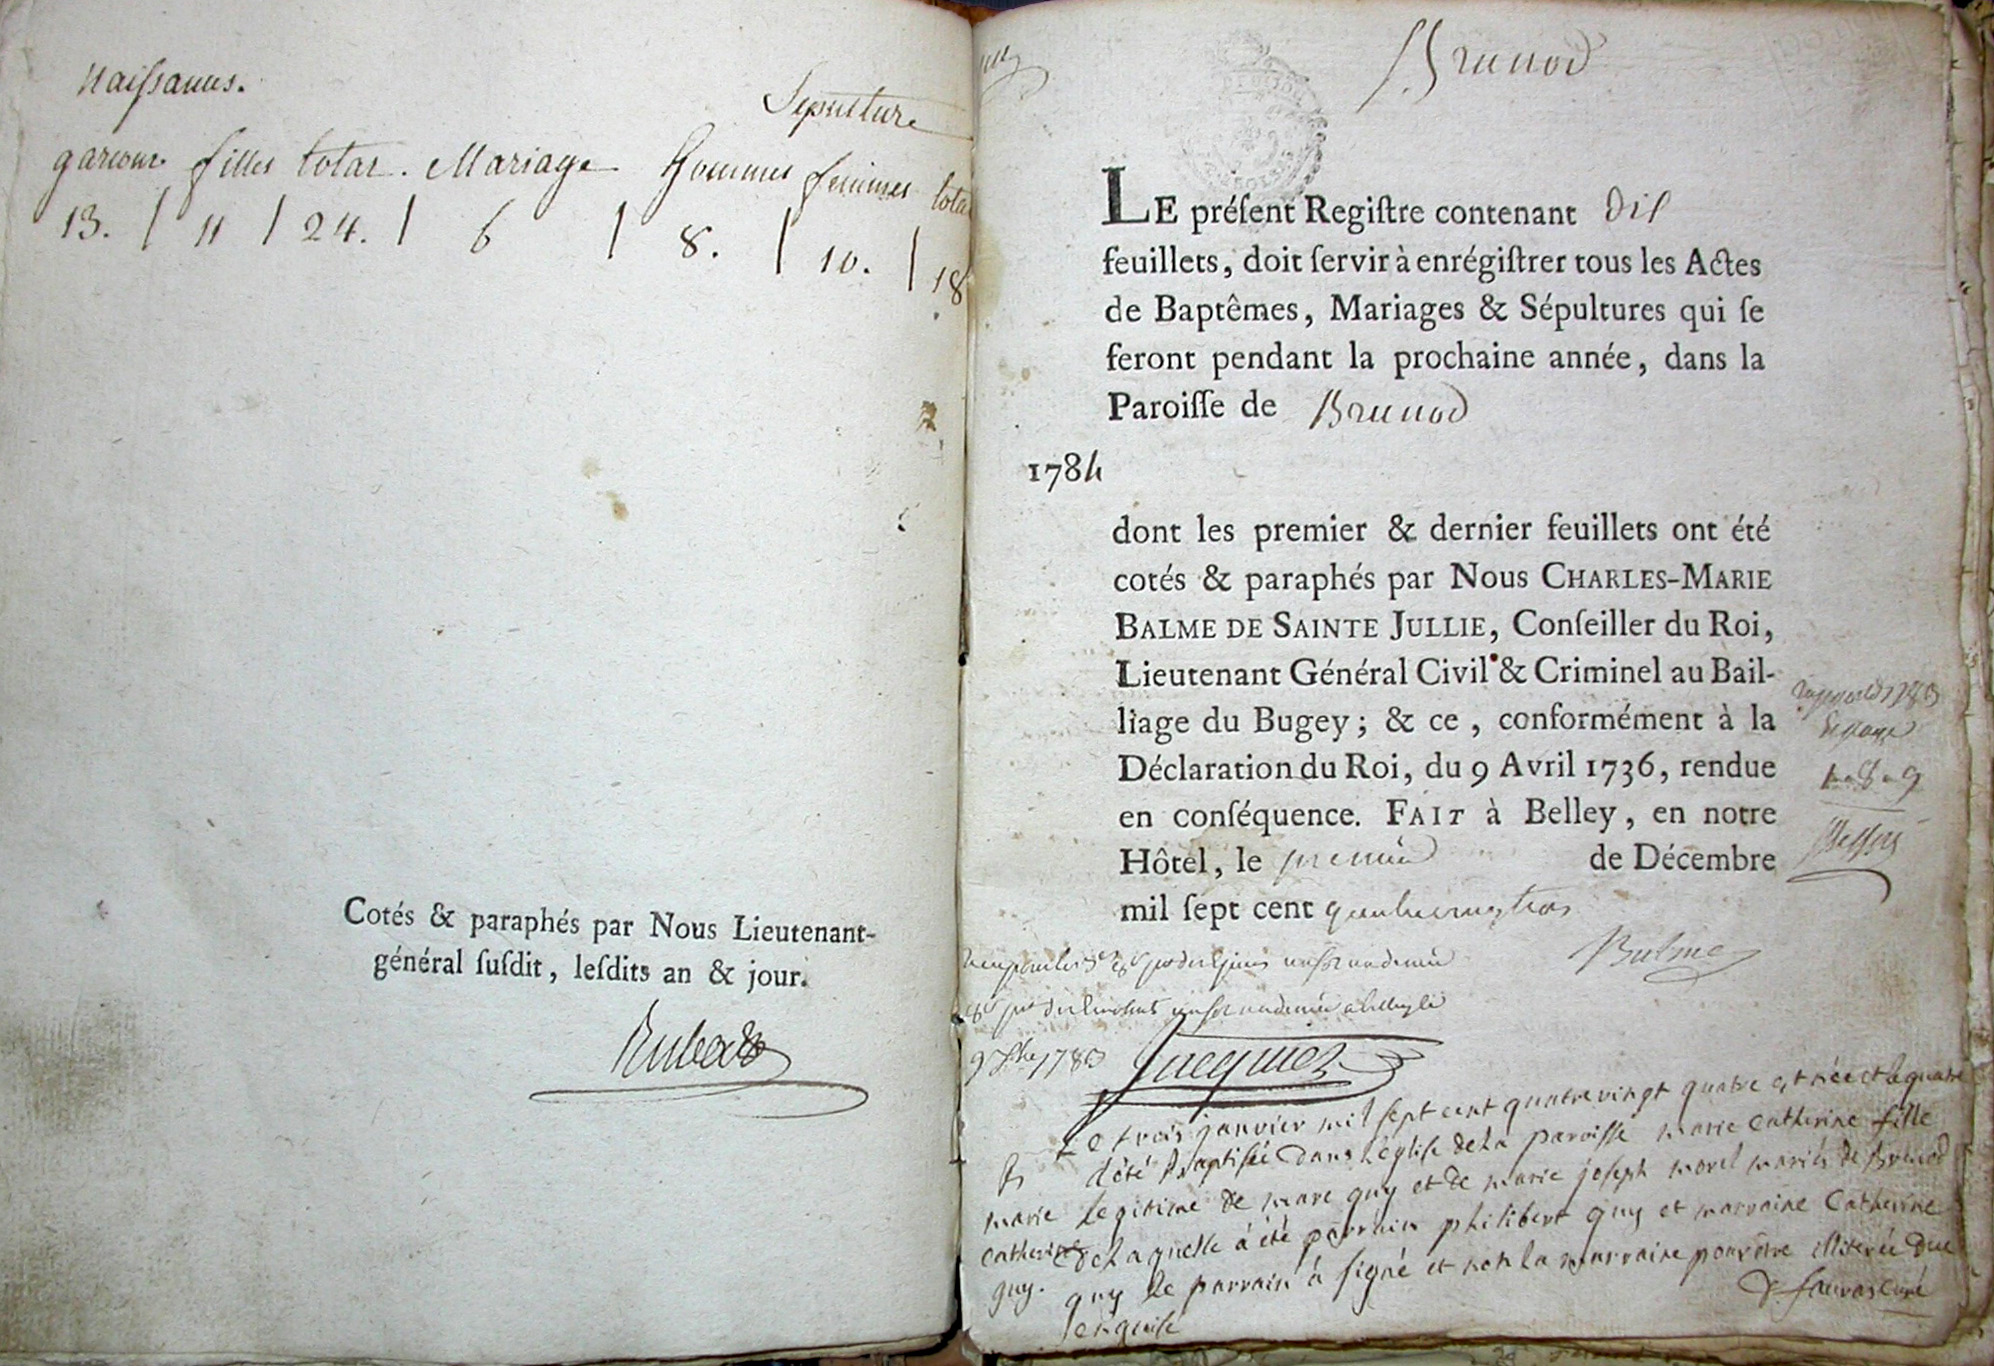 Naissances.
Sepulture
garcons filles total. Mariage hommes femmes total
13. | 11 | 24. | 6 | 8. | 10. | 18
Cotés & paraphés par Nous Lieutenant-
général ſuſdit, leſdits an & jour.
Brunod
LE préſent Regiſtre contenant dix
feuillets, doit ſervir à enrégiſtrer tous les Actes
de Baptêmes, Mariages & Sépultures qui ſe
feront pendant la prochaine année, dans la
Paroiſſe de Brunod
1784
dont les premier & dernier feuillets ont été
cotés & paraphés par Nous CHARLES-MARIE
BALME DE SAINTE JULLIE, Conſeiller du Roi,
Lieutenant Général Civil & Criminel au Bail-
liage du Bugey ; & ce , conformément à la
Déclaration du Roi, du 9 Avril 1736, rendue
en conſéquence. FAIT à Belley, en notre
Hôtel, le premier de Décembre
mil ſept cent quatre vingt trois
Balme
1783
Jacquier
Le trois janvier mil sept cent quatre vingt quatre est née et le quatre
B d'été baptisée dans l'église de la paroisse marie catherine fille
marie legitime de marc guy et de marie joseph morel mariés de Brunod
catherine de laquelle à été parrain philibert guy et marraine Catherine
guy. guy le parrain à signé et non la marraine pour être illiterée due
enquise
curé